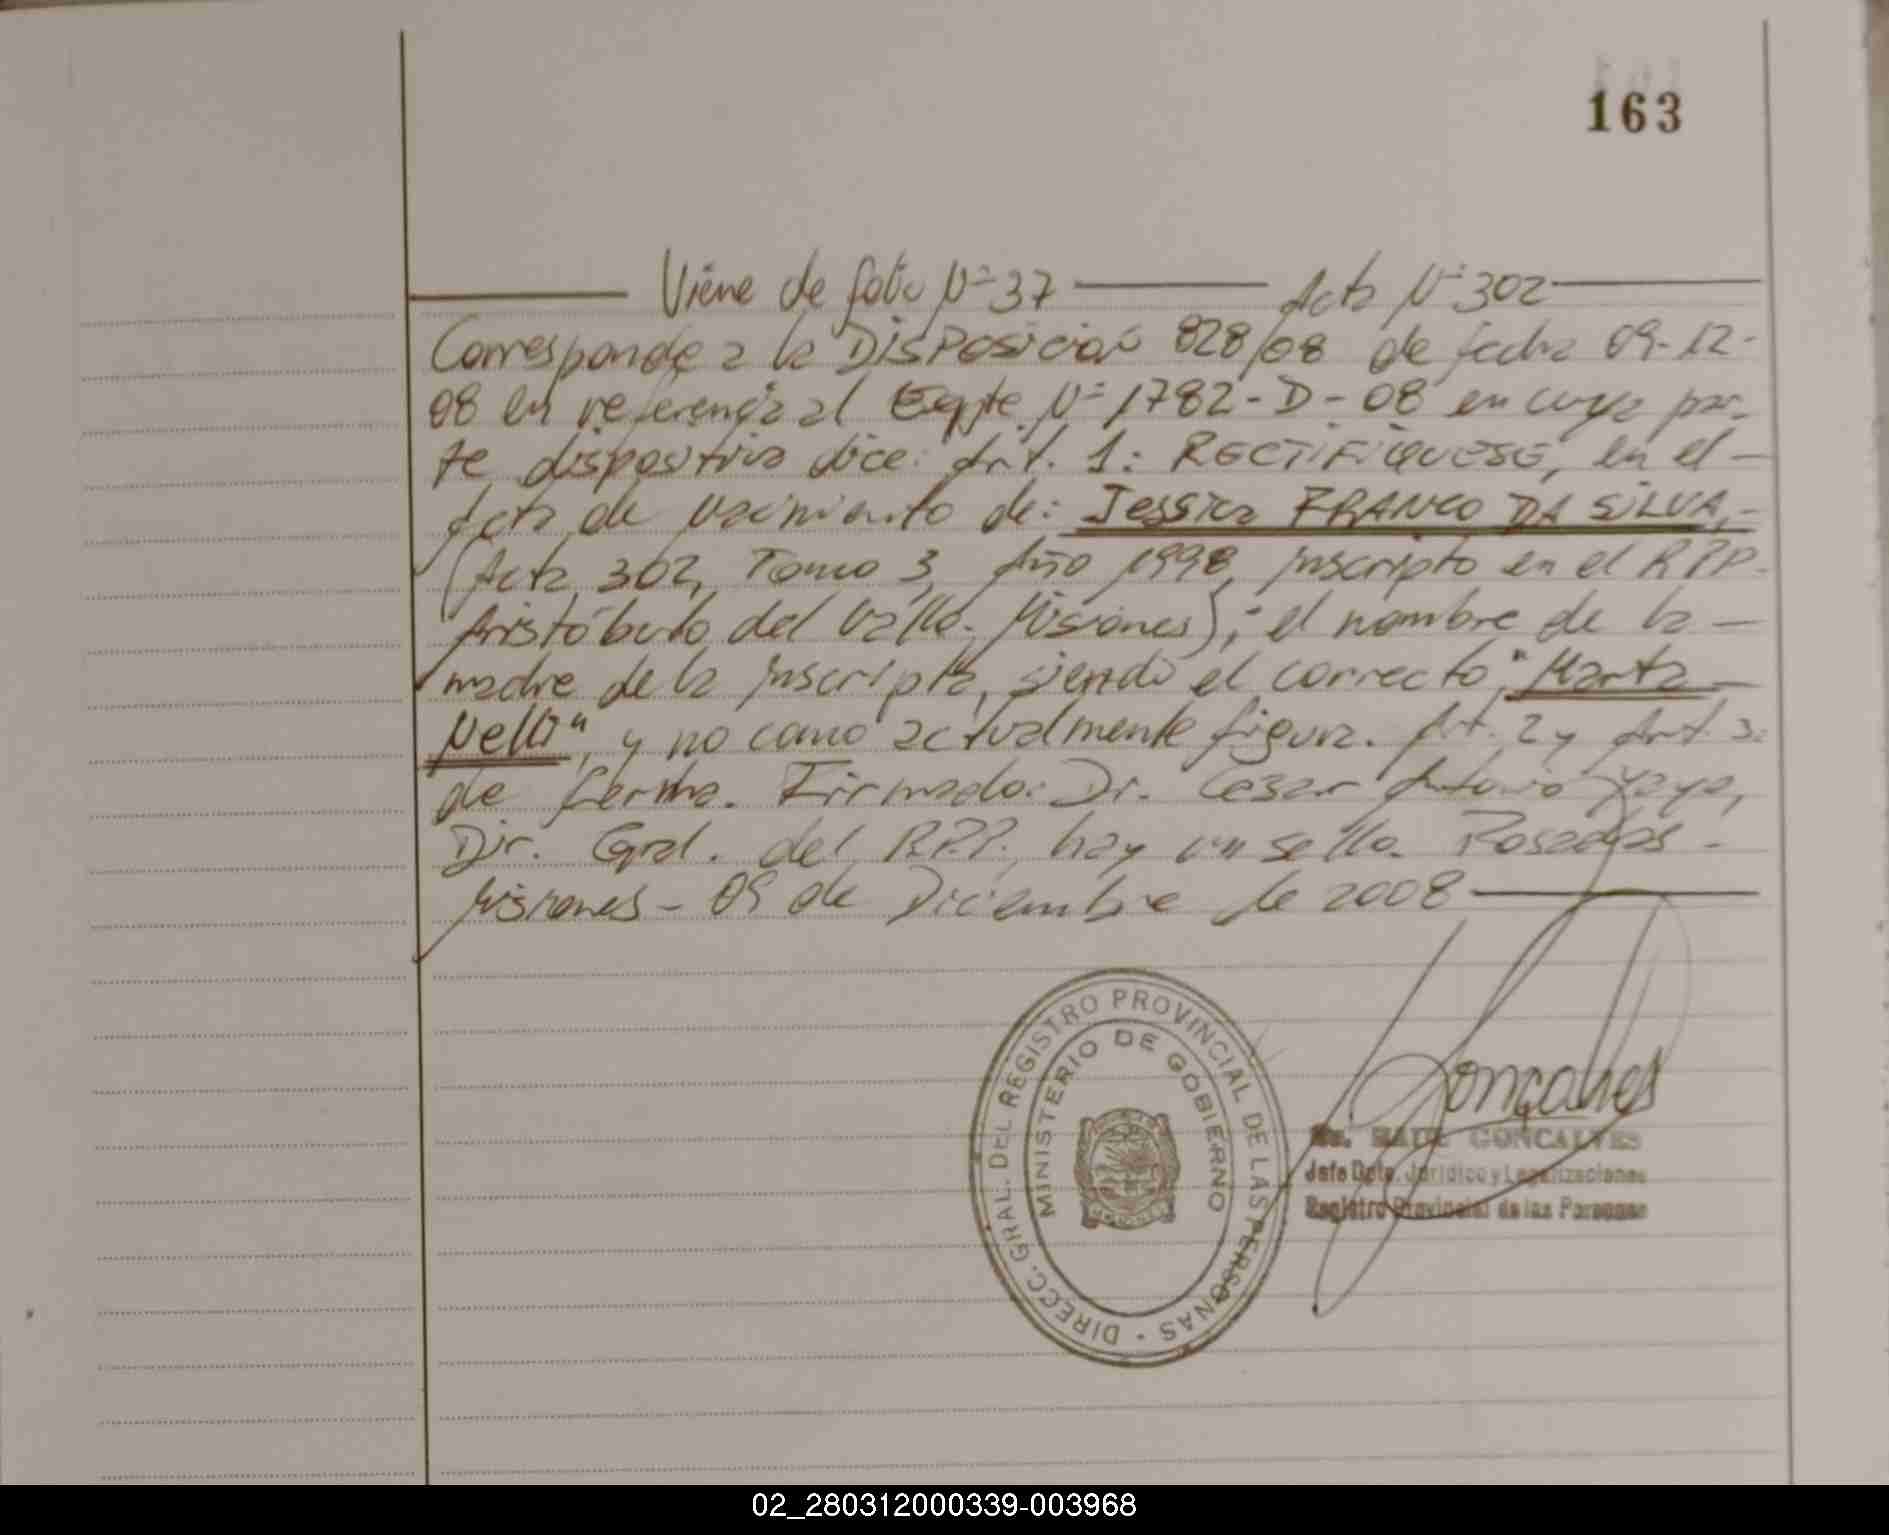 163
Viene de folio Nº 37 Acta Nº 302
Corresponde a la DISPOSICIÓN 828/08 de fecha 09-12-
08 en referencia al Expte. Nº 1782-D-08 en cuya par-
te dispositiva dice: Art. 1: RECTIFIQUESE, en el
Acta de nacimiento de: Jessica FRANCO DA SILVA,
(Acta 302, Tomo 3, Año 1998, Inscripto en el RPP.
Aristóbulo del Valle. Misiones); el nombre de la
madre de la inscripta, siendo el correcto: "Marta
Nelli", y no como actualmente figura. Art. 2 y Art. 3:
de forma. Firmado: Dr. Cesar Antonio Yaya,
Dir. Gral. del RPP. hay un sello. Posadas -
Misiones - 09 de Diciembre de 2008
DIRECC. GRAL. DEL REGISTRO PROVINCIAL DE LAS PERSONAS
MINISTERIO DE GOBIERNO
Gonçalves
GONCALVES
Jefe Dpto. Jurídico y Legalizaciones
Registro Provincial de las Personas
02_280312000339-003968